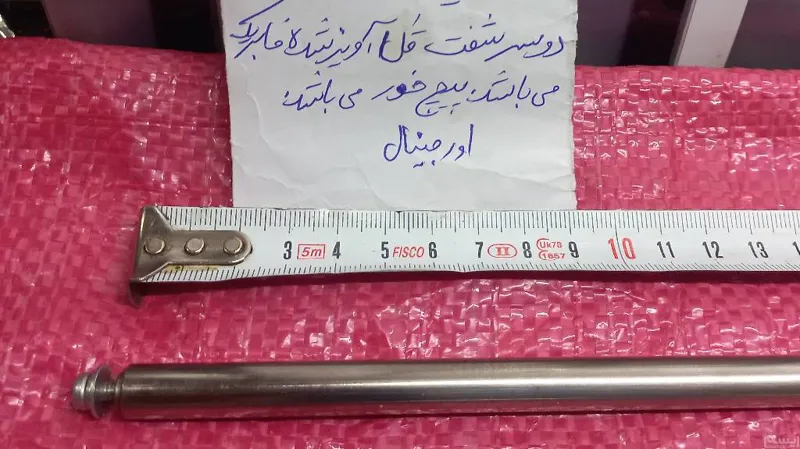 دوسر شفت قُلاویز شده فابریک
می باشد. پیچ خور می باشد.
اورجینال
3 5m 4 5 FISCO 6 7 II 8 Uk78 1657 9 10 11 12 13